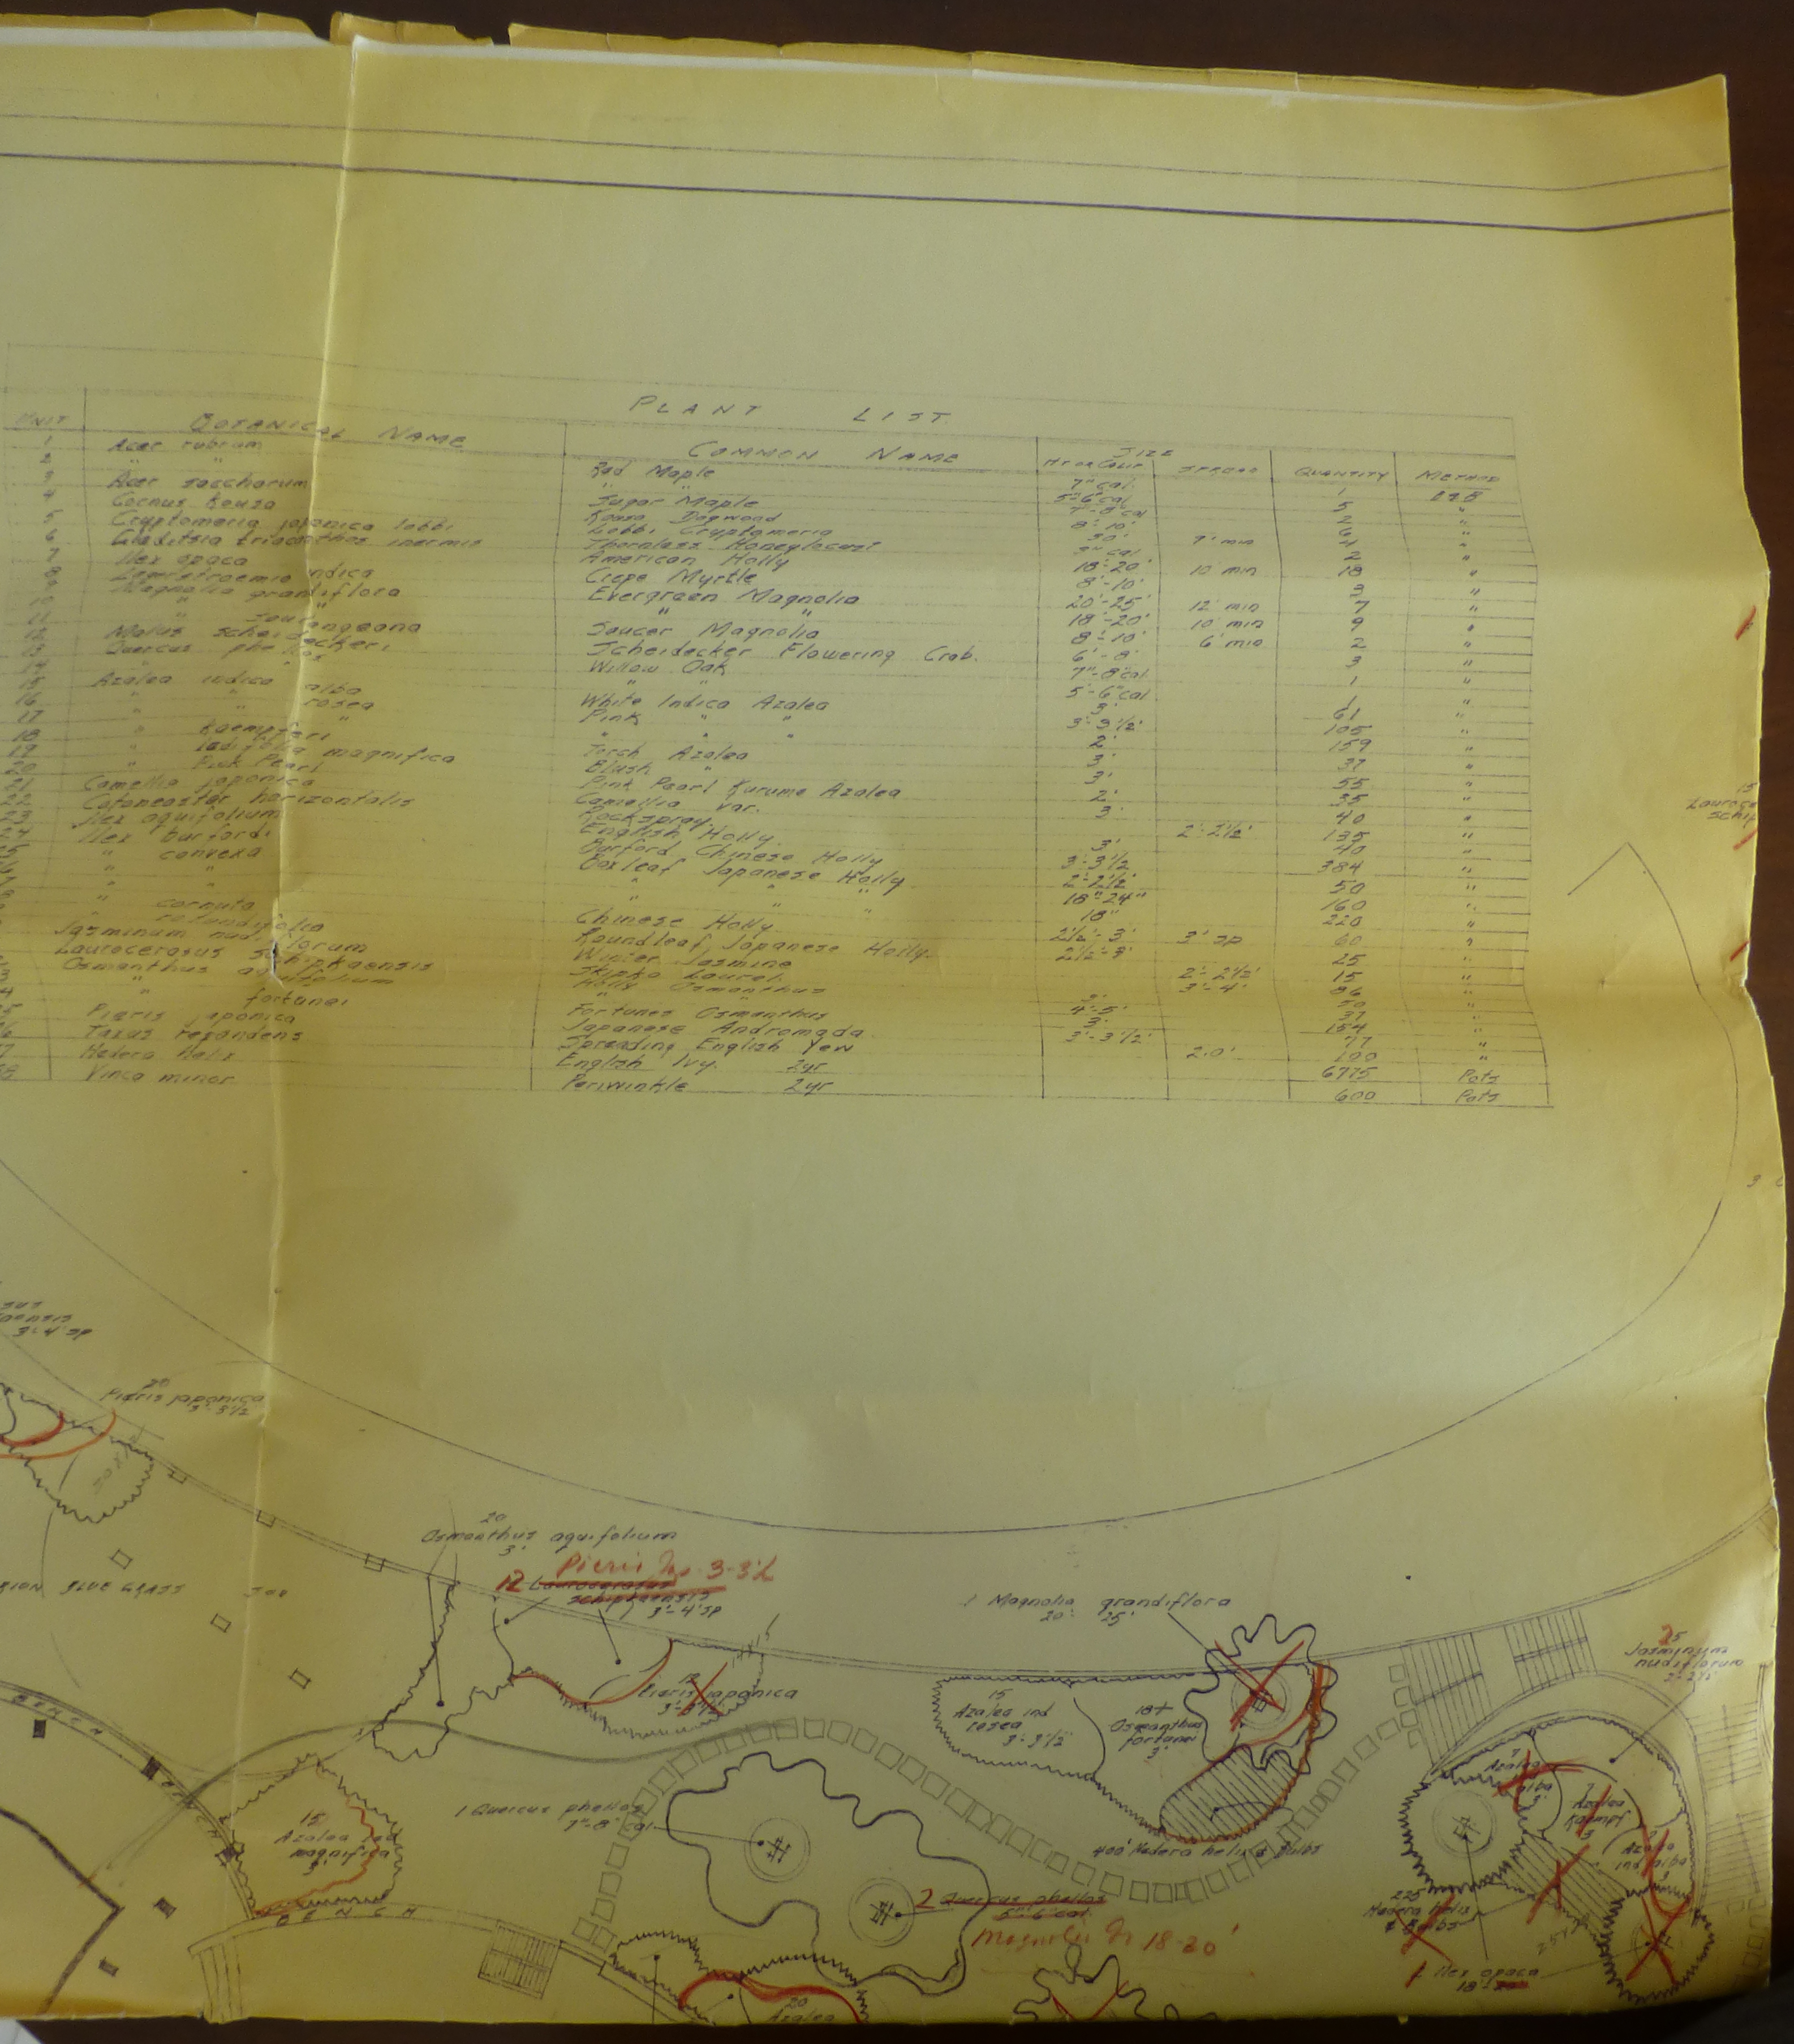 PLANT LIST
UNIT BOTANICAL NAME COMMON NAME SIZE HT OR CALIP SPREAD QUANTITY METHOD
1 Acer rubrum Red Maple 7" cal. 1 B&B
2 " " " " 5"-6" cal 5 "
3 Acer saccharum Sugar Maple 7"-8" cal 2 "
4 Cornus kousa Kousa Dogwood 8'-10' 6 "
5 Cryptomeria japonica lobbi Lobbi Cryptomeria 30' 9' min 4 "
6 Gleditsia triacanthos inermis Thornless Honeylocust 3" cal 2 "
7 Ilex opaca American Holly 18'-20' 10' min 18 "
8 Lagerstroemia indica Crepe Myrtle 8'-10' 3 "
9 Magnolia grandiflora Evergreen Magnolia 20'-25' 12' min 7 "
10 " " " " 18'-20' 10' min 9 "
11 " soulangeana Saucer Magnolia 8'-10' 6' min 2 "
12 Malus scheideckeri Scheidecker Flowering Crab. 6'-8' 3 "
13 Quercus phellos Willow Oak 7"-8" cal 1 "
14 " " " " 5"-6" cal 1 "
15 Azalea indica alba White Indica Azalea 3' 61 "
16 " " rosea Pink " " 3'-3 1/2' 105 "
17 " " " " " " 2' 159 "
18 " kaempferi Torch Azalea 3' 37 "
19 " ledifolia magnifica Blush " 3' 55 "
20 " Pink Pearl Pink Pearl Kurume Azalea 2' 35 "
21 Camellia japonica Camellia var. 3' 40 "
22 Cotoneaster horizontalis Rockspray 2'-2 1/2' 135 "
23 Ilex aquifolium English Holly 3' 40 "
24 Ilex burfordi Burford Chinese Holly 3'-3 1/2' 384 "
25 " convexa Boxleaf Japanese Holly 2'-2 1/2' 50 "
" " " " " 18"-24" 160 "
" " " " " 18" 220 "
" cornuta Chinese Holly 2 1/2'-3' 3' sp 60 "
" rotundifolia Roundleaf Japanese Holly 2 1/2'-3' 25 "
Jasminum nudiflorum Winter Jasmine 2'-2 1/2' 15 "
Laurocerasus schipkaensis Skipka Laurel 3'-4' 86 "
Osmanthus aquifolium Holly Osmanthus 3' "
" " " " 4'-5' 37 "
" fortunei Fortunes Osmanthus 3' 154 "
Pieris japonica Japanese Andromada 3'-3 1/2' 77 "
Taxus repandens Spreading English Yew 2.0' 100 "
Hedera helix English Ivy. 2yr 6775 Pots
Vinca minor Periwinkle 2yr 600 Pots
15
3'-4' sp
20
Pieris japonica
3'-3 1/2'
BLUE GRASS SOD
20
Osmanthus aquifolium
3'
Pieris Jap. 3-3 1/2
12 Laurocerasus
schipkaensis
3'-4' sp
12
Pieris japonica
3'-3 1/2'
1 Magnolia grandiflora
20' 25'
15
Azalea ind
rosea
3'-3 1/2'
18+
Osmanthus
fortunei
3'
25
Jasminum
nudiflorum
2'-2 1/2'
BENCH
BENCH
15
Azalea led
magnifica
3'
BENCH
1 Quercus phellos
7"-8" cal
2 Quercus phellos
5"-6" cal
Magnolia Gr 18-20'
400 Hedera helix & Bulbs
7
Azalea
alba
3'
7
Azalea
Kaempf
3
9
Azalea
ind alba
225
Hedera helix
& Bulbs
1 Ilex opaca
18'-20'
20
Azalea